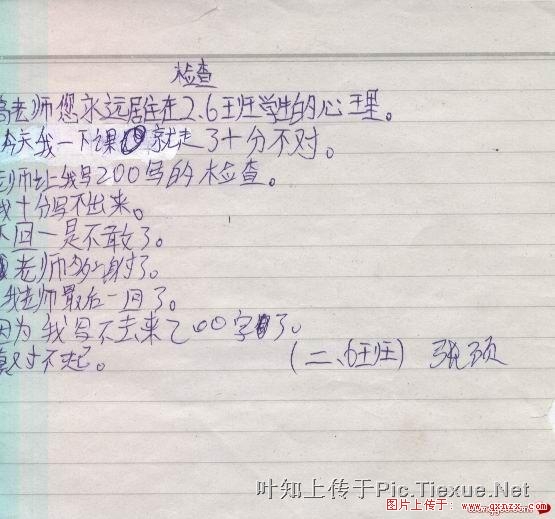 检查
高老师您永远居住在2.6班学生的心里。
今天我一下课就走了十分不对。
老师让我写200写的检查。
我十分写不出来。
下回一是不敢了。
老师多谢了。
我老师最后一回了。
因为我写不出来200字了。
真对不起。
(二、6班) 张
叶知上传于Pic.Tiexue.Net
图片上传于:www.gxnzx.com